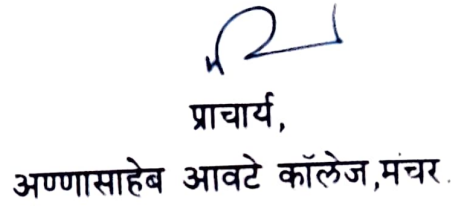 प्राचार्य,
अण्णासाहेब आवटे कॉलेज,मंचर.